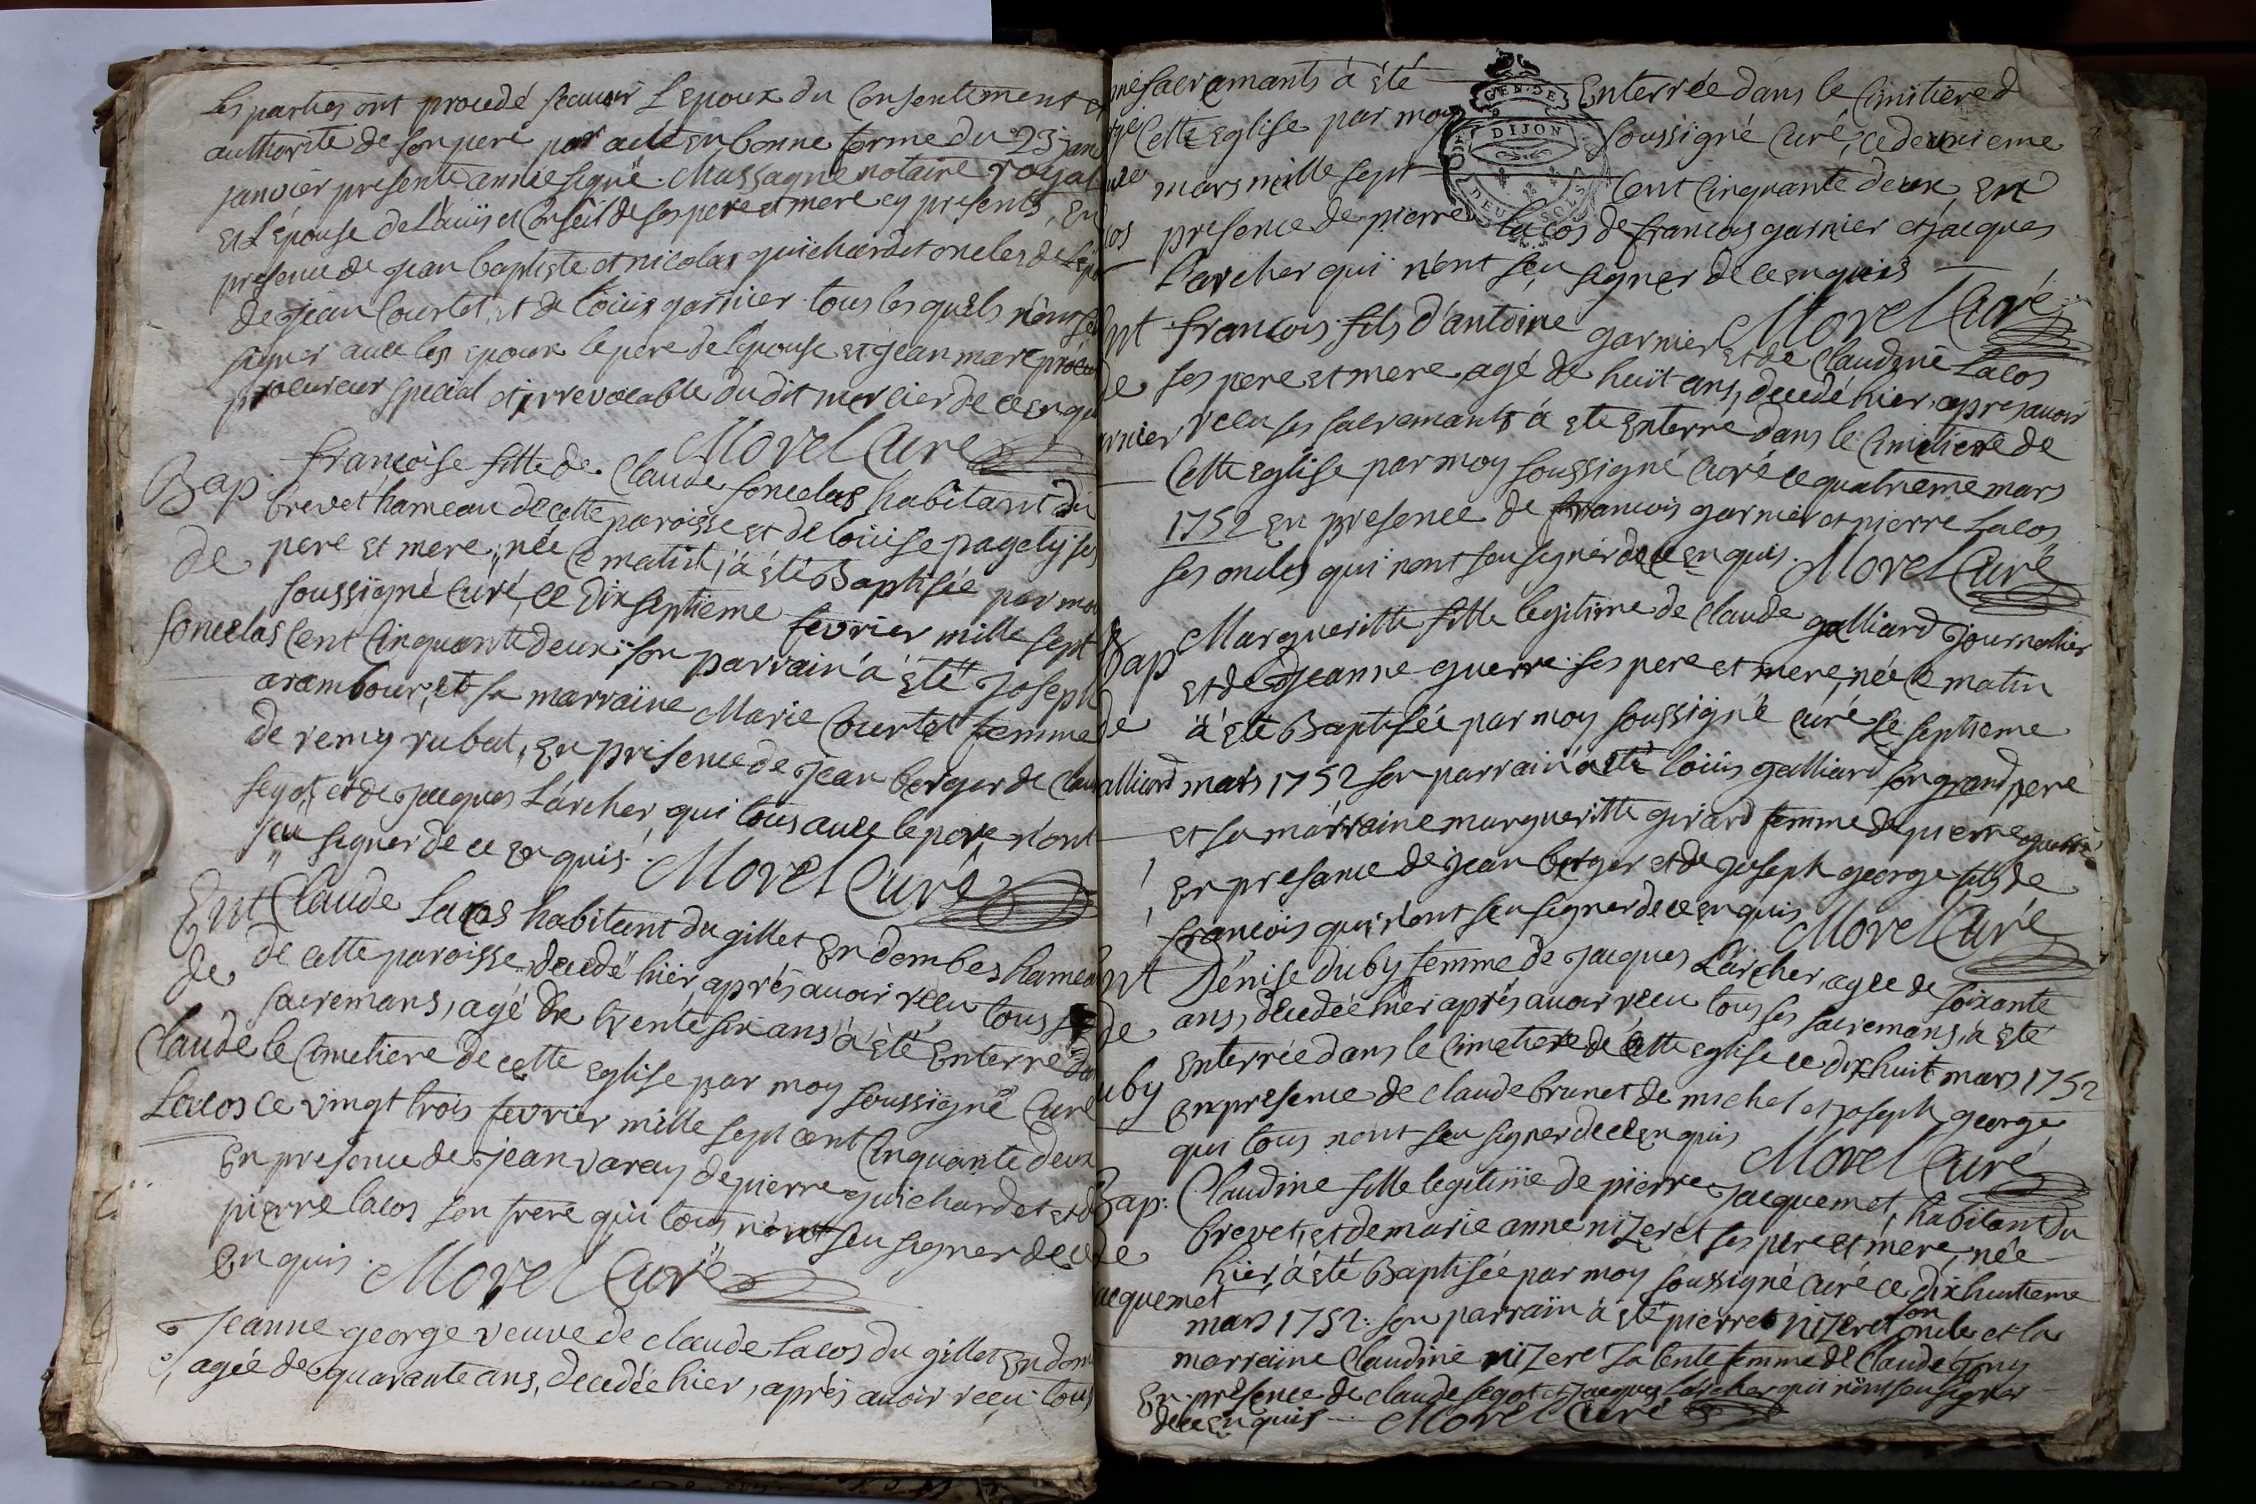 les parties ont procedé scavoir L'epoux du Consentement et
authorité de son pere par acte en bonne forme du 23 janv
janvier presente année signé Massagne notaire royal
et L'épouse de L'auis et Conseil de ses pere et mere cy presents, En
presence de jean baptiste et nicolas guichardet oncles de L'ep
de jean Courtet et de loüis garnier tous les quels n'ont sç
signer avec les epoux le pere de l'epouse et jean marc
procureur special et irrevocable du dit mercier de ce enqu
Morel Curé
Bap françoise fille de Claude fonselas habitant du
brevet hameau de cette paroisse et de loüise pagely ses
de pere et mere, née ce matin, a été Baptisée par mo
soussigné Curé, ce dix septieme fevrier mille sept
fonselas Cent Cinquante deux. son parrain a été Joseph
arambour, et sa marraine Marie Courtet femme
de remy rubat, En presence de jean berger de clau
segot, et de jacques L'archer qui tous avec le pere n'ont
sçu signer de ce enquis. Morel Curé
Ent Claude Lacos habitant du gillet En dombes hamea
de de cette paroisse decedé hier après avoir reçu tous s
sacremans, agé de trente six ans a été Enterré da
Claude le Cimetiere de cette eglise par moy soussigné Curé
Lacos ce vingt trois fevrier mille sept cent Cinquante deux
En presence de jean varay de pierre guichardet et d
pierre lacos son frere qui tous n'ont sçu signer de ce
Enquis. Morel Curé
Jeanne george veuve de claude lacos du gillet En dom
agée de quarante ans, decedée hier, après avoir reçu tous
sacramants a été Enterrée dans le Cimitiere d
Cette Eglise par moy soussigné Curé, ce deuxieme
mars mille sept Cent Cinquante deux, En
presence de pierre lacos de francois garnier et jacques
L'archer qui n'ont sçu signer de ce enquis
GEN. DE
DIJON
DEUX SOLS
Morel Curé
Ent francois fils d'antoine garnier et de Claudine Lacos
de ses pere et mere agé de huit ans, decedé hier, apres avoir
arnier reçu ses sacremants a été Enterré dans le Cimitiere de
Cette Eglise par moy soussigné Curé ce quatrieme mars
1752 En presence de francois garnier et pierre Lacos
ses oncles qui n'ont sçu signer de ce enquis. Morel Curé
Bap Margueritte fille legitime de Claude galliard journallier
et de Jeanne guerre ses pere et mere, née ce matin
de a été Baptisée par moy soussigné Curé le septieme
alliard mars 1752 son parrain a été loüis galliard son grand pere
et sa marraine margueritte girard femme de pierre guerre
En presance de jean berger et de joseph george fils de
francois qui n'ont sçu signer de ce enquis Morel Curé
Ent Denise duby femme de jacques Larcher, agée de soixante
de ans, decedée hier aprés avoir reçu tous ses sacremans, a été
Enterrée dans le Cimetiere de Cette eglise ce dix huit mars 1752
uby En presence de claude brunet de michel et joseph george
qui tous n'ont sçu signer de ce enquis Morel Curé
Bap: Claudine fille legitime de pierre jacquemet, habitant du
brevet, et de marie anne nizeret ses pere et mere, née
de hier, a été Baptisée par moy soussigné Curé ce dix huitieme
acquemet mars 1752: son parrain a été pierre nizeret son oncle et la
marraine Claudine nizeret sa tente femme de Claude
En presence de claude segot et jacques Larcher qui n'ont sçu signer
de ce enquis Morel Curé